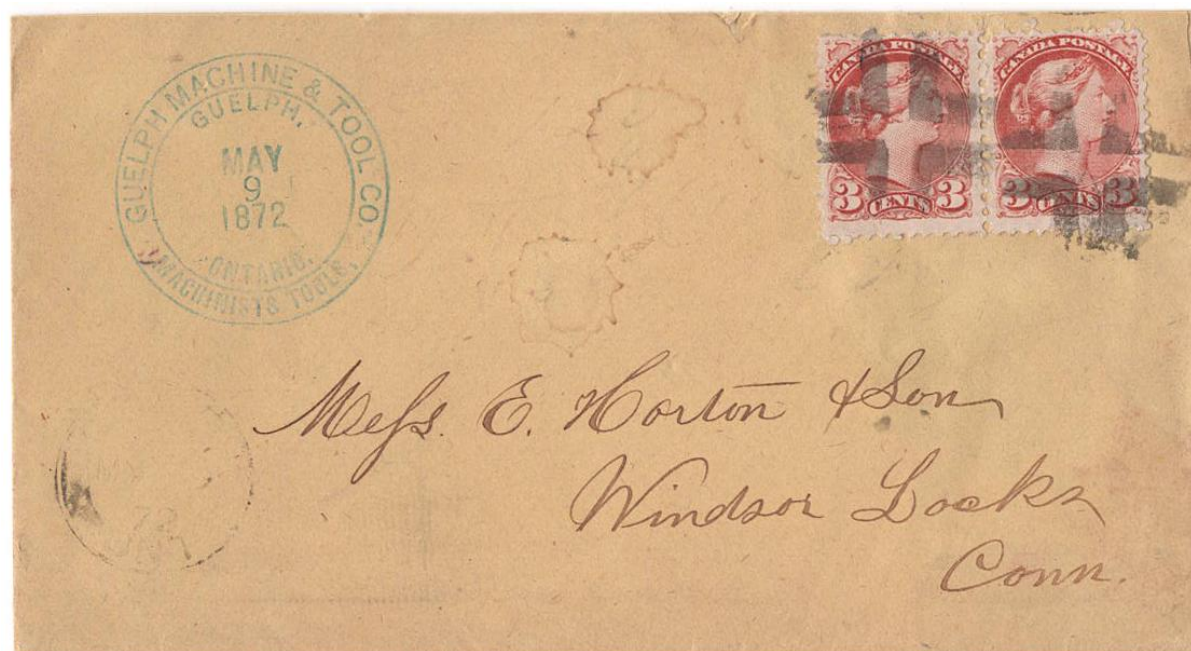 GUELPH MACHINE & TOOL CO.
GUELPH,
MAY
9
1872
ONTARIO.
MACHINISTS TOOLS,
CANADA POSTAGE
3 CENTS 3
CANADA POSTAGE
3 CENTS 3
Mess. E. Horton & Son
Windsor Locks
Conn.
72